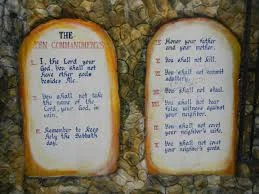 THE
TEN COMMANDMENTS
I. I, the Lord your
God, You shall not
have other gods
besides Me.
II. You shall not take
the name of the
Lord, your God, in
vain.
III. Remember to Keep
Holy the Sabbath
day.
IV. Honor your father
and your mother.
V. You shall not kill.
VI. You shall not commit
adultery.
VII. You shall not steal.
VIII. You shall not bear
false witness against
your neighbor.
IX. You shall not covet
your neighbor's wife.
X. You shall not covet
your neighbor's goods.